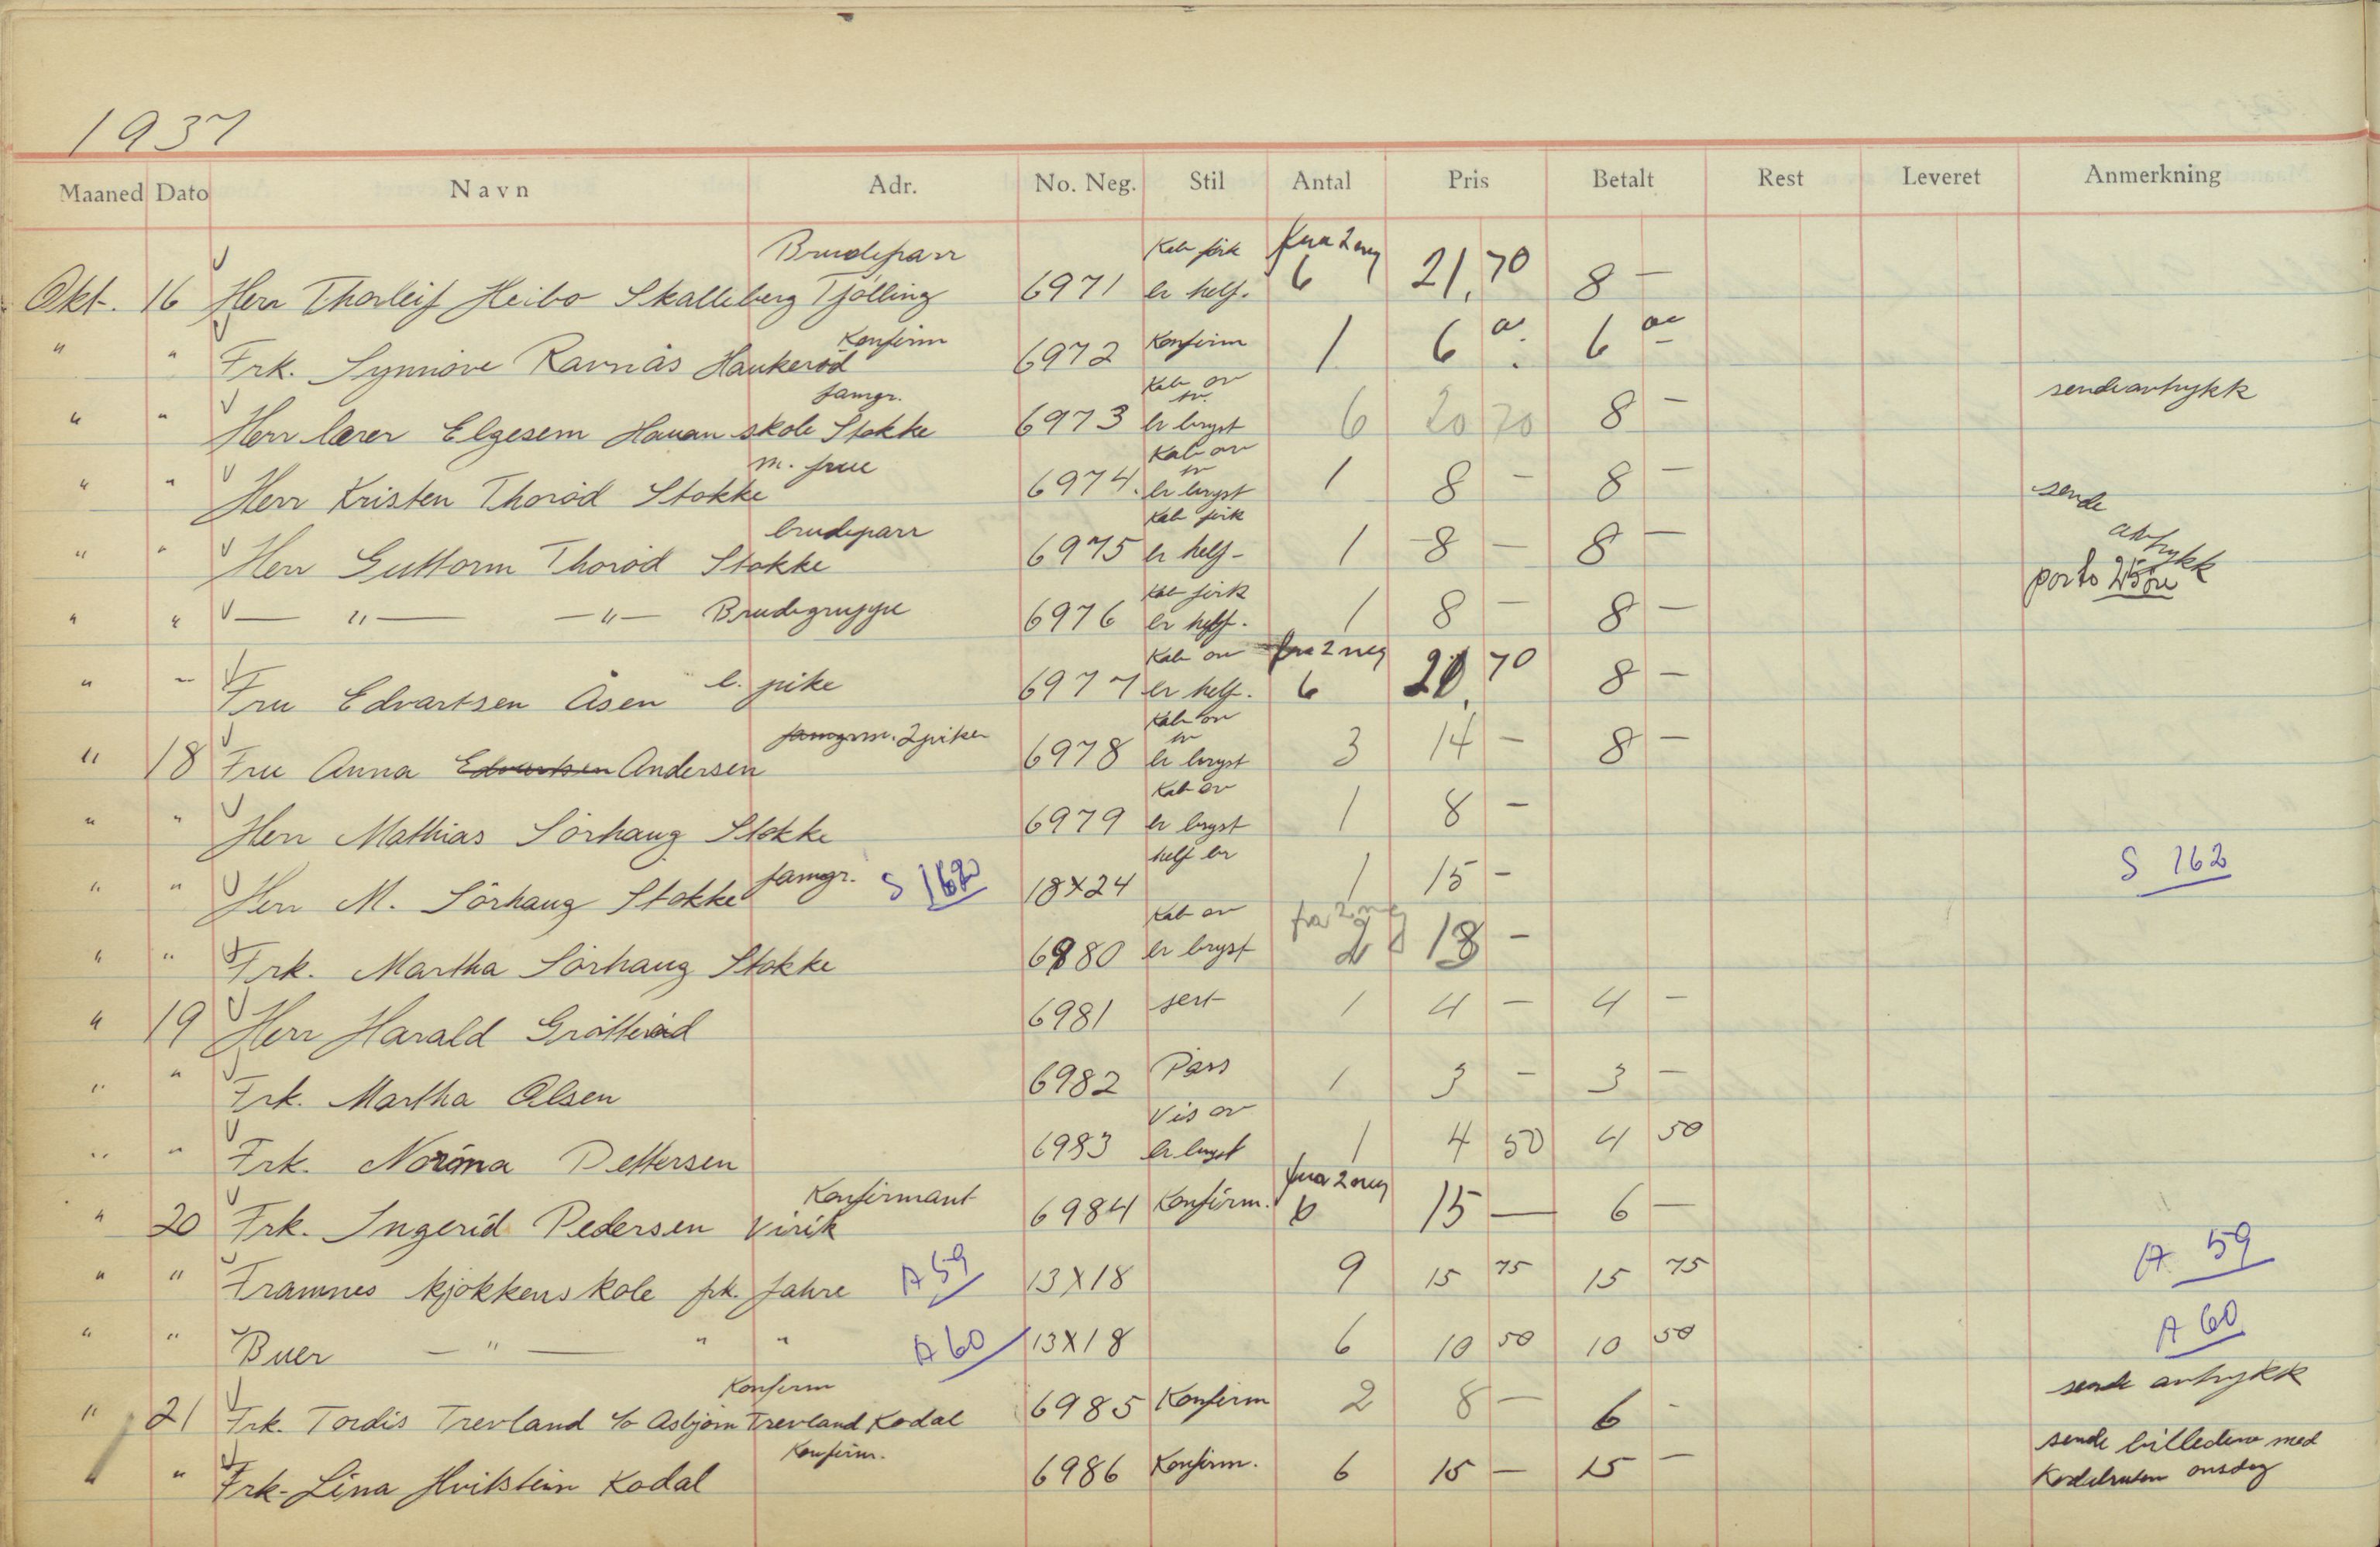 1937
Maaned Dato Navn Adr. No. Neg. Stil Antal Pris Betalt Rest Leveret Anmerkning
Brudeparr Kab fra 2 neg
Okt. 16 Herr Thorleif Heibo Skalleberg Tjølling 6971 er helf. 6 21,70 8 —
Konfirm
" " Frk. Synnöve Ravnås Haukeröd 6972 Konfirm 1 6 6
famgr. Kab sendeavtrykk
" " Herr lærer Elgesem Hauan skole Stokke 6973 er bryst 6 20 70 8 —
m. frue Kab
" " Herr Kristen Thoröd Stokke 6974. er bryst 1 8 — 8 — sende
brudeparr Kab avtrykk
" " Herr Guttorm Thoröd Stokke 6975 er helf- 1 8 — 8 — porto 25 öre
Kab
" " — " — — " — Brudegruppe 6976 er helf. 1 8 — 8 —
Kab fra 2 neg
" " Fru Edvartsen Åsen l. pike 6977 er helf. 6 20,70 8 —
famgr m. 2 piker Kab
" 18 Fru Anna Edvartsen Andersen 6978 er bryst 3 14 — 8 —
Kab
" " Herr Mathias Sörhaug Stokke 6979 er bryst 1 8 —
famgr. helf
" " Herr M. Sörhaug Stokke S 162 18X24 1 15 — S 162
Kab fra 2 neg
" " Frk. Martha Sörhaug Stokke 6980 er bryst 18 —
" 19 Herr Harald Grötteröd 6981 1 4 — 4 —
" " Frk. Martha Olsen 6982 Pass 1 3 — 3 —
Vis
" " Frk. Norma Pettersen 6983 er bryst 1 4 50 4 50
Konfirmant fra 2 neg
" 20 Frk. Ingerid Pedersen Virik 6984 Konfirm. 6 15 — 6 —
" " Framnes kjøkkenskole frk. Jahre A 59 13X18 9 15 75 15 75 A 59
" " Buer — " — " " A 60 13X18 6 10 50 10 50 A 60
Konfirm sende avtrykk
" 21 Frk. Tordis Trevland c/o Asbjørn Trevland Kodal 6985 Konfirm 2 8 — 6 -
Konfirm. sende billedene med
" " Frk. Lina Hvitstein Kodal 6986 Konfirm. 6 15 — 15 — Kodalruten onsdag